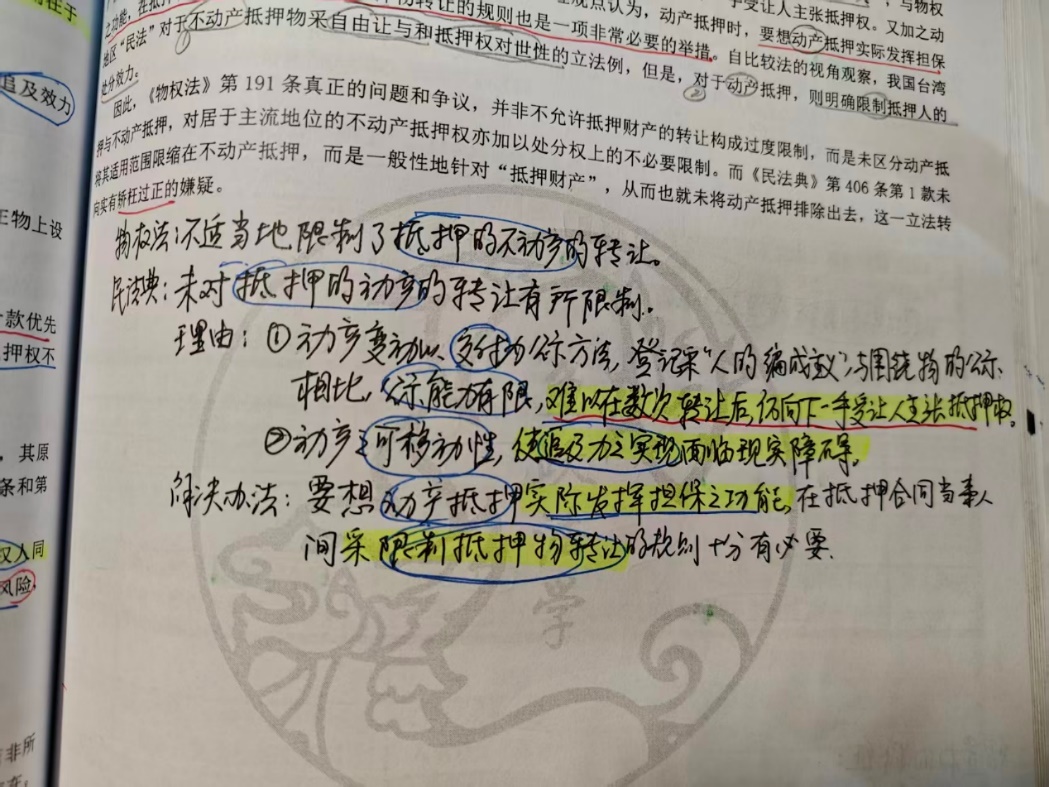 之功能,在抵押
转让的规则也是一项非常必要的举措。自比较法的视角观察,我国台湾
观点认为,动产抵押时,要想动产抵押实际发挥担保
受让人主张抵押权。又加之动
,与物权
地区“民法”对于不动产抵押物采自由让与和抵押权对世性的立法例,但是,对于动产抵押,则明确限制抵押人的
处分效力。
因此,《物权法》第 191 条真正的问题和争议,并非不允许抵押财产的转让构成过度限制,而是未区分动产抵
押与不动产抵押,对居于主流地位的不动产抵押权亦加以处分权上的不必要限制。而《民法典》第 406 条第 1 款未
将其适用范围限缩在不动产抵押,而是一般性地针对“抵押财产”,从而也就未将动产抵押排除出去,这一立法转
向实有矫枉过正的嫌疑。
物权法:不适当地限制了抵押的不动产的转让。
民法典:未对抵押的动产的转让有所限制。
理由:①动产变动以交付为公示方法,登记采“人的编成主义”与围绕物的公示
相比,公示能力有限,难以在数次转让后,仍向下一手受让人主张抵押权。
②动产之可移动性,使追及力之实现面临现实障碍。
解决办法:要想动产抵押实际发挥担保之功能,在抵押合同当事人
间采限制抵押物转让的规则十分有必要.
学
追及效力
物上设
款优先
押权不
,其原
条和第
权人同
风险,
非所